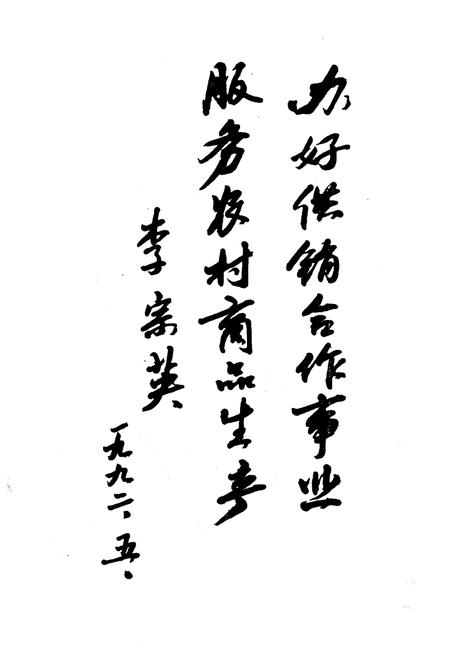 办好供销合作事业
服务农村商品生产
李宗英
一九九二、五、